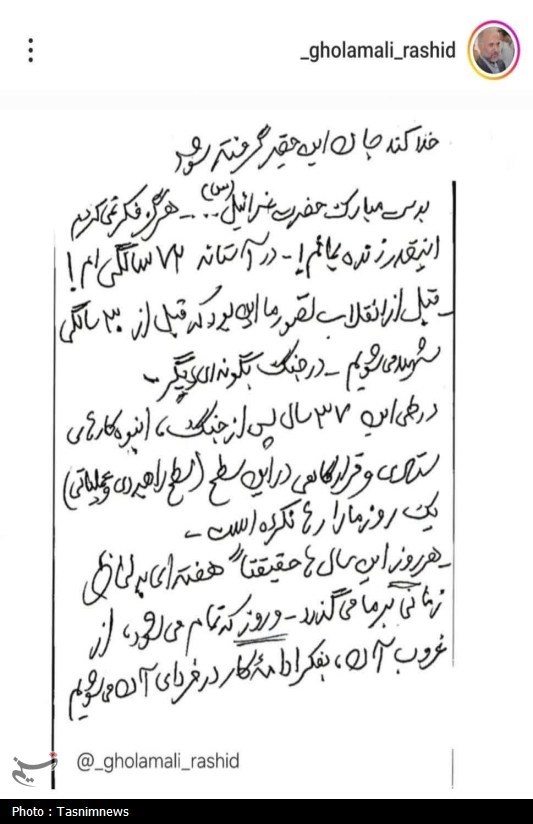 _gholamali_rashid
خدا کند جان این حقیر گرفته شود
بدست مبارک حضرت عزرائیل (س) .. - هرگز فکر نمی کردم
اینقدر زنده بمانم! - در آستانه ۷۲ سالگی ام!
- قبل از انقلاب تصور ما این بود که قبل از ۳۰ سالگی
شهید می شویم - در جنگ بگونه ای دیگر -
در طی این ۳۷ سال پس از جنگ، انبوه کارهای
ستادی و قرارگاهی در این سطح (سطح راهبردی و عملیاتی)
یک روز ما را رها نکرده است -
- هر روز این سال ها حقیقتاً هفته ای به لحاظ
زمانی بر ما می گذرد - و روز که تمام می شود، از
غروب آن، بفکر ادامۀ کار در فردای آن می شویم
تسنیم
@_gholamali_rashid
Photo : Tasnimnews